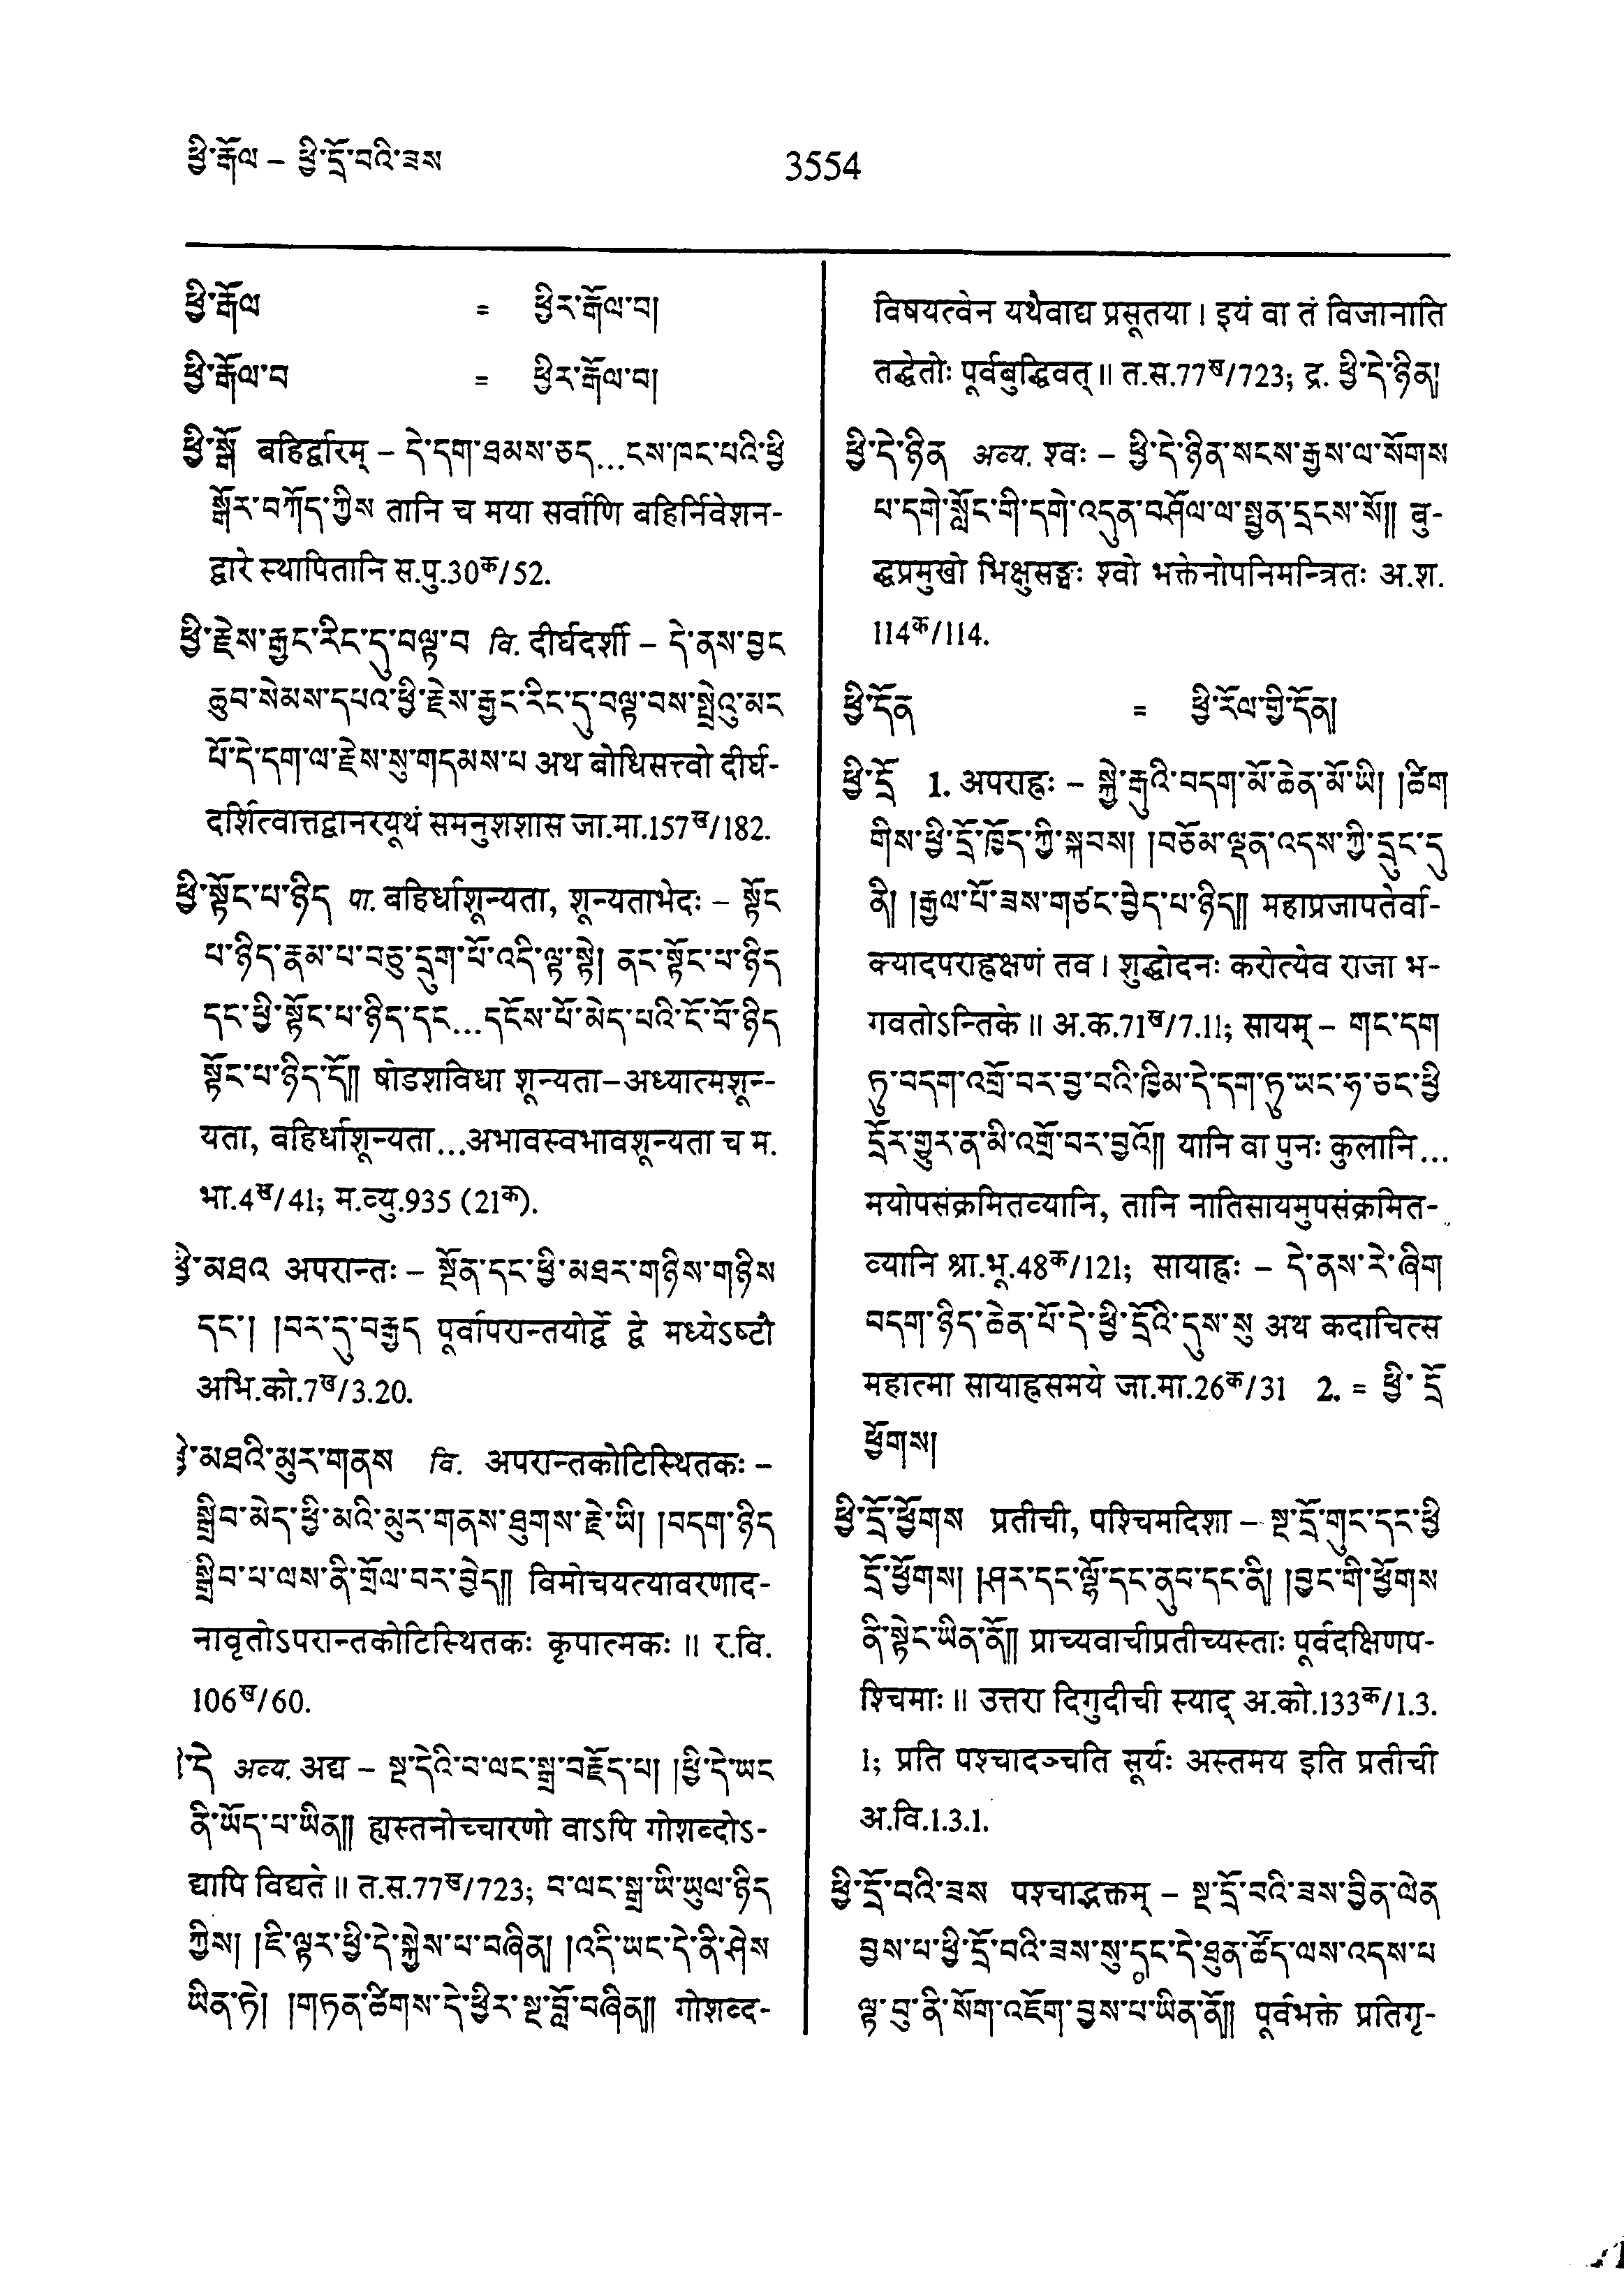 ཕྱི་རྒོལ – ཕྱི་དྲོ་བའི་ཟས
3554
ཕྱི་རྒོལ = ཕྱིར་རྒོལ་བ།
ཕྱི་རྒོལ་བ = ཕྱིར་རྒོལ་བ།
ཕྱི་སྒོ बहिर्द्वारम् – དེ་དག་ཐམས་ཅད...ངས་ཁང་པའི་ཕྱི
སྒོར་བཀོད་ཀྱིས तानि च मया सर्वाणि बहिर्निवेशन-
द्वारे स्थापितानि स.पु.30क/52.
ཕྱི་རྗེས་རྒྱང་རིང་དུ་བལྟ་བ वि. दीर्घदर्शी – དེ་ནས་བྱང
ཆུབ་སེམས་དཔའ་ཕྱི་རྗེས་རྒྱང་རིང་དུ་བལྟ་བས་སྤྲེའུ་མང
པོ་དེ་དག་ལ་རྗེས་སུ་གདམས་པ अथ बोधिसत्त्वो दीर्घ-
दर्शित्वात्तद्वानरयूथं समनुशशास जा.मा.157ख/182.
ཕྱི་སྟོང་པ་ཉིད पा. बहिर्धाशून्यता, शून्यताभेदः – སྟོང
པ་ཉིད་རྣམ་པ་བཅུ་དྲུག་པོ་འདི་ལྟ་སྟེ། ནང་སྟོང་པ་ཉིད
དང་ཕྱི་སྟོང་པ་ཉིད་དང...དངོས་པོ་མེད་པའི་ངོ་བོ་ཉིད
སྟོང་པ་ཉིད་དོ།། षोडशविधा शून्यता–अध्यात्मशून्-
यता, बहिर्धाशून्यता...अभावस्वभावशून्यता च म.
भा.4ख/41; म.व्यु.935 (21क).
ཕྱི་མཐའ अपरान्तः – སྔོན་དང་ཕྱི་མཐར་གཉིས་གཉིས
དང་། །བར་དུ་བརྒྱད पूर्वापरान्तयोर्द्वे द्वे मध्येऽष्टौ
अभि.को.7ख/3.20.
ཕྱི་མཐའི་མུར་གནས वि. अपरान्तकोटिस्थितकः –
སྒྲིབ་མེད་ཕྱི་མའི་མུར་གནས་ཐུགས་རྗེ་ཡི། །བདག་ཉིད
སྒྲིབ་པ་ལས་ནི་གྲོལ་བར་བྱེད།། विमोचयत्यावरणाद-
नावृतोऽपरान्तकोटिस्थितकः कृपात्मकः ॥ र.वि.
106ख/60.
ཕྱི་དེ अव्य. अद्य – སྔ་དེའི་བ་ལང་སྒྲ་བརྗོད་པ། །ཕྱི་དེ་ཡང
ནི་ཡོད་པ་ཡིན།། ह्यस्तनोच्चारणो वाऽपि गोशब्दोऽ-
द्यापि विद्यते ॥ त.स.77ख/723; བ་ལང་སྒྲ་ཡི་ཡུལ་ཉིད
ཀྱིས། །ཇི་ལྟར་ཕྱི་དེ་སྐྱེས་པ་བཞིན། །འདི་ཡང་དེ་ནི་ཤེས
ཡིན་ཏེ། །གཏན་ཚིགས་དེ་ཕྱིར་སྔ་བློ་བཞིན།། गोशब्द-
विषयत्वेन यथैवाद्य प्रसूतया । इयं वा तं विजानाति
तद्धेतोः पूर्वबुद्धिवत् ॥ त.स.77ख/723; द्र. ཕྱི་དེ་ཉིན།
ཕྱི་དེ་ཉིན अव्य. श्वः – ཕྱི་དེ་ཉིན་སངས་རྒྱས་ལ་སོགས
པ་དགེ་སློང་གི་དགེ་འདུན་བཤོལ་ལ་སྤྱན་དྲངས་སོ།། बु-
द्धप्रमुखो भिक्षुसङ्घः श्वो भक्तेनोपनिमन्त्रितः अ.श.
114क/114.
ཕྱི་དོན = ཕྱི་རོལ་གྱི་དོན།
ཕྱི་དྲོ 1. अपराह्नः – སྐྱེ་རྒུའི་བདག་མོ་ཆེན་མོ་ཡི། །ཚིག
གིས་ཕྱི་དྲོ་ཁྱོད་ཀྱི་སྐབས། །བཅོམ་ལྡན་འདས་ཀྱི་དྲུང་དུ
ནི། །རྒྱལ་པོ་ཟས་གཙང་བྱེད་པ་ཉིད།། महाप्रजापतेर्वा-
क्यादपराह्नक्षणं तव । शुद्धोदनः करोत्येव राजा भ-
गवतोऽन्तिके ॥ अ.क.71ख/7.11; सायम् – གང་དག
ཏུ་བདག་འགྲོ་བར་བྱ་བའི་ཁྱིམ་དེ་དག་ཏུ་ཡང་ཧ་ཅང་ཕྱི
དྲོར་གྱུར་ན་མི་འགྲོ་བར་བྱའོ།། यानि वा पुनः कुलानि...
मयोपसंक्रमितव्यानि, तानि नातिसायमुपसंक्रमित-
व्यानि श्रा.भू.48क/121; सायाह्नः – དེ་ནས་རེ་ཞིག
བདག་ཉིད་ཆེན་པོ་དེ་ཕྱི་དྲོའི་དུས་སུ अथ कदाचित्स
महात्मा सायाह्नसमये जा.मा.26क/31 2. = ཕྱི་ དྲོ
ཕྱོགས།
ཕྱི་དྲོ་ཕྱོགས प्रतीची, पश्चिमदिशा – སྔ་དྲོ་གུང་དང་ཕྱི
དྲོ་ཕྱོགས། །ཤར་དང་ལྷོ་དང་ནུབ་དང་ནི། །བྱང་གི་ཕྱོགས
ནི་སྟེང་ཡིན་ནོ།། प्राच्यवाचीप्रतीच्यस्ताः पूर्वदक्षिणप-
श्चिमाः ॥ उत्तरा दिगुदीची स्याद् अ.को.133क/1.3.
1; प्रति पश्चादञ्चति सूर्यः अस्तमय इति प्रतीची
अ.वि.1.3.1.
ཕྱི་དྲོ་བའི་ཟས पश्चाद्भक्तम् – སྔ་དྲོ་བའི་ཟས་བྱིན་ལེན
བྱས་པ་ཕྱི་དྲོ་བའི་ཟས་སུ་དུང་དེ་ཐུན་ཚོད་ལས་འདས་པ
ལྟ་བུ་ནི་སོག་འཇོག་བྱས་པ་ཡིན་ནོ།། पूर्वभक्ते प्रतिगृ-